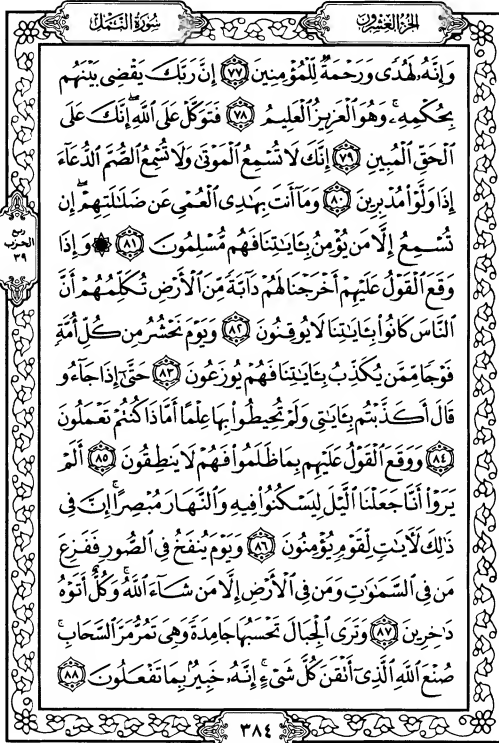 الجزء العشرون
سورة النمل
وَإِنَّهُۥ لَهُدًى وَرَحْمَةٌ لِّلْمُؤْمِنِينَ ٧٧ إِنَّ رَبَّكَ يَقْضِى بَيْنَهُم
بِحُكْمِهِۦ ۚ وَهُوَ الْعَزِيزُ الْعَلِيمُ ٧٨ فَتَوَكَّلْ عَلَى اللَّهِ ۖ إِنَّكَ عَلَى
الْحَقِّ الْمُبِينِ ٧٩ إِنَّكَ لَا تُسْمِعُ الْمَوْتَىٰ وَلَا تُسْمِعُ الصُّمَّ الدُّعَآءَ
إِذَا وَلَّوْا۟ مُدْبِرِينَ ٨٠ وَمَآ أَنتَ بِهَـٰدِى الْعُمْىِ عَن ضَلَـٰلَتِهِمْ ۖ إِن
تُسْمِعُ إِلَّا مَن يُؤْمِنُ بِـَٔايَـٰتِنَا فَهُم مُّسْلِمُونَ ٨١ ۞ وَإِذَا
وَقَعَ الْقَوْلُ عَلَيْهِمْ أَخْرَجْنَا لَهُمْ دَآبَّةً مِّنَ الْأَرْضِ تُكَلِّمُهُمْ أَنَّ
النَّاسَ كَانُوا۟ بِـَٔايَـٰتِنَا لَا يُوقِنُونَ ٨٢ وَيَوْمَ نَحْشُرُ مِن كُلِّ أُمَّةٍ
فَوْجًا مِّمَّن يُكَذِّبُ بِـَٔايَـٰتِنَا فَهُمْ يُوزَعُونَ ٨٣ حَتَّىٰٓ إِذَا جَآءُو
قَالَ أَكَذَّبْتُم بِـَٔايَـٰتِى وَلَمْ تُحِيطُوا۟ بِهَا عِلْمًا أَمَّاذَا كُنتُمْ تَعْمَلُونَ
٨٤ وَوَقَعَ الْقَوْلُ عَلَيْهِم بِمَا ظَلَمُوا۟ فَهُمْ لَا يَنطِقُونَ ٨٥ أَلَمْ
يَرَوْا۟ أَنَّا جَعَلْنَا الَّيْلَ لِيَسْكُنُوا۟ فِيهِ وَالنَّهَارَ مُبْصِرًا ۚ إِنَّ فِى
ذَٰلِكَ لَـَٔايَـٰتٍ لِّقَوْمٍ يُؤْمِنُونَ ٨٦ وَيَوْمَ يُنفَخُ فِى الصُّورِ فَفَزِعَ
مَن فِى السَّمَـٰوَٰتِ وَمَن فِى الْأَرْضِ إِلَّا مَن شَآءَ اللَّهُ ۚ وَكُلٌّ أَتَوْهُ
دَٰخِرِينَ ٨٧ وَتَرَى الْجِبَالَ تَحْسَبُهَا جَامِدَةً وَهِىَ تَمُرُّ مَرَّ السَّحَابِ ۚ
صُنْعَ اللَّهِ الَّذِىٓ أَتْقَنَ كُلَّ شَىْءٍ ۚ إِنَّهُۥ خَبِيرٌۢ بِمَا تَفْعَلُونَ ٨٨
ربع
الحزب
٣٩
٣٨٤